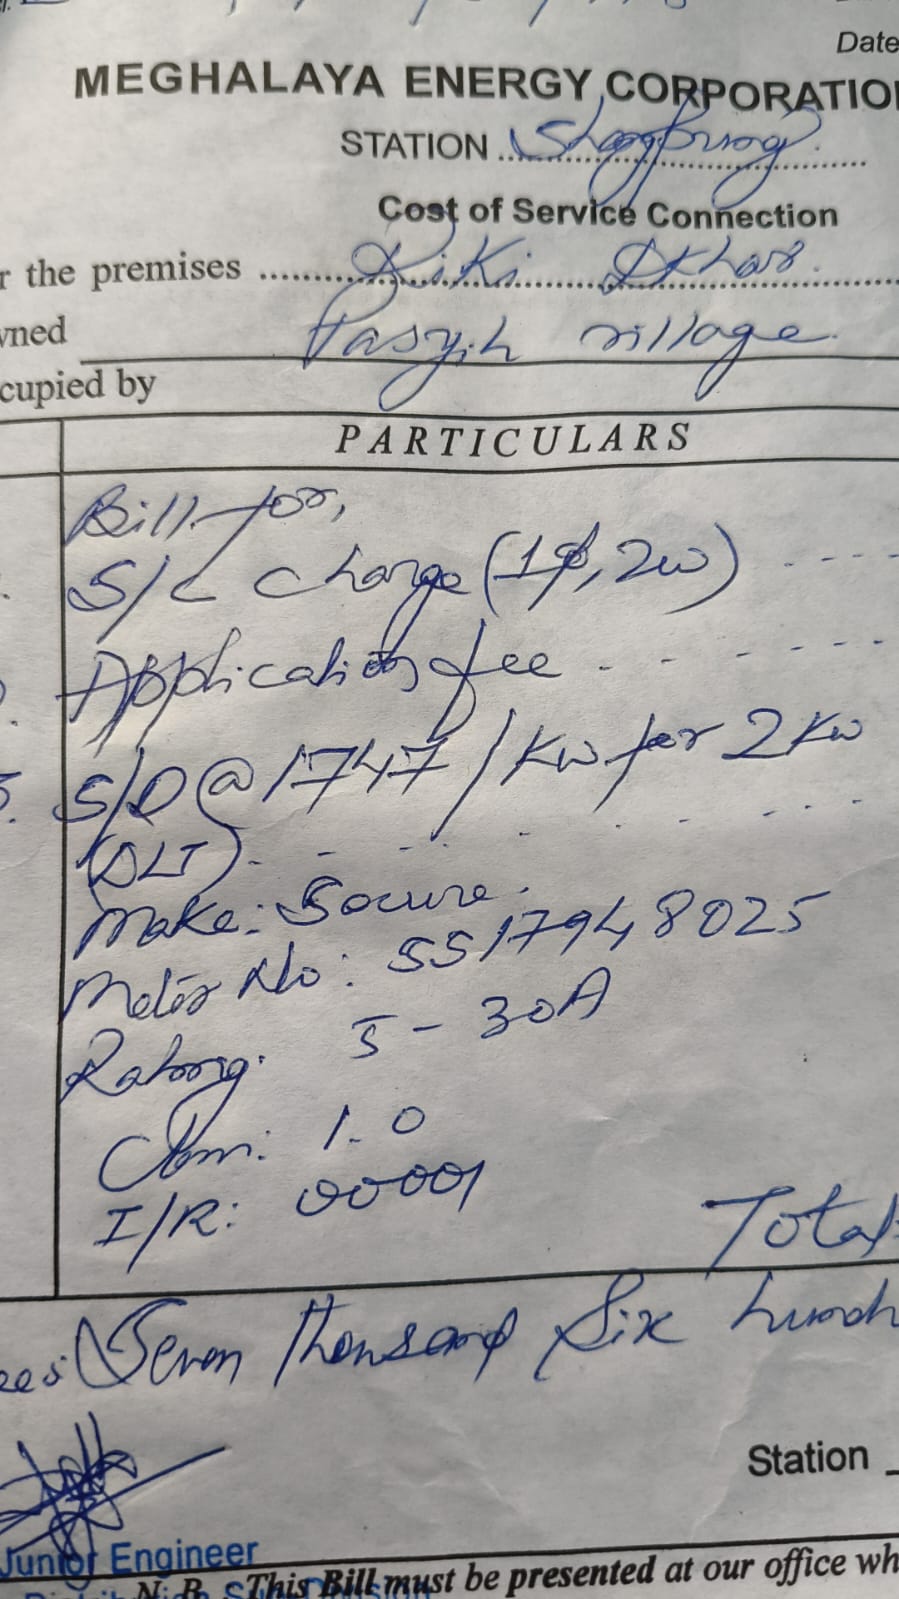 Date
MEGHALAYA ENERGY CORPORATIO
STATION Shangpung.
Cost of Service Connection
r the premises Kiki Dkhar.
wned Pasyih village.
cupied by
PARTICULARS
Bill for,
S/C Charge (1φ, 2w)
Application fee
S/D @ 1747/Kw for 2Kw
(DLT)
Make: Secure.
Meter No: SS17948025
Rating: 5-30A
Com: 1.0
I/R: 00001
Total
ees Seven Thousand Six hund
Station
Junior Engineer
N. B. This Bill must be presented at our office wh